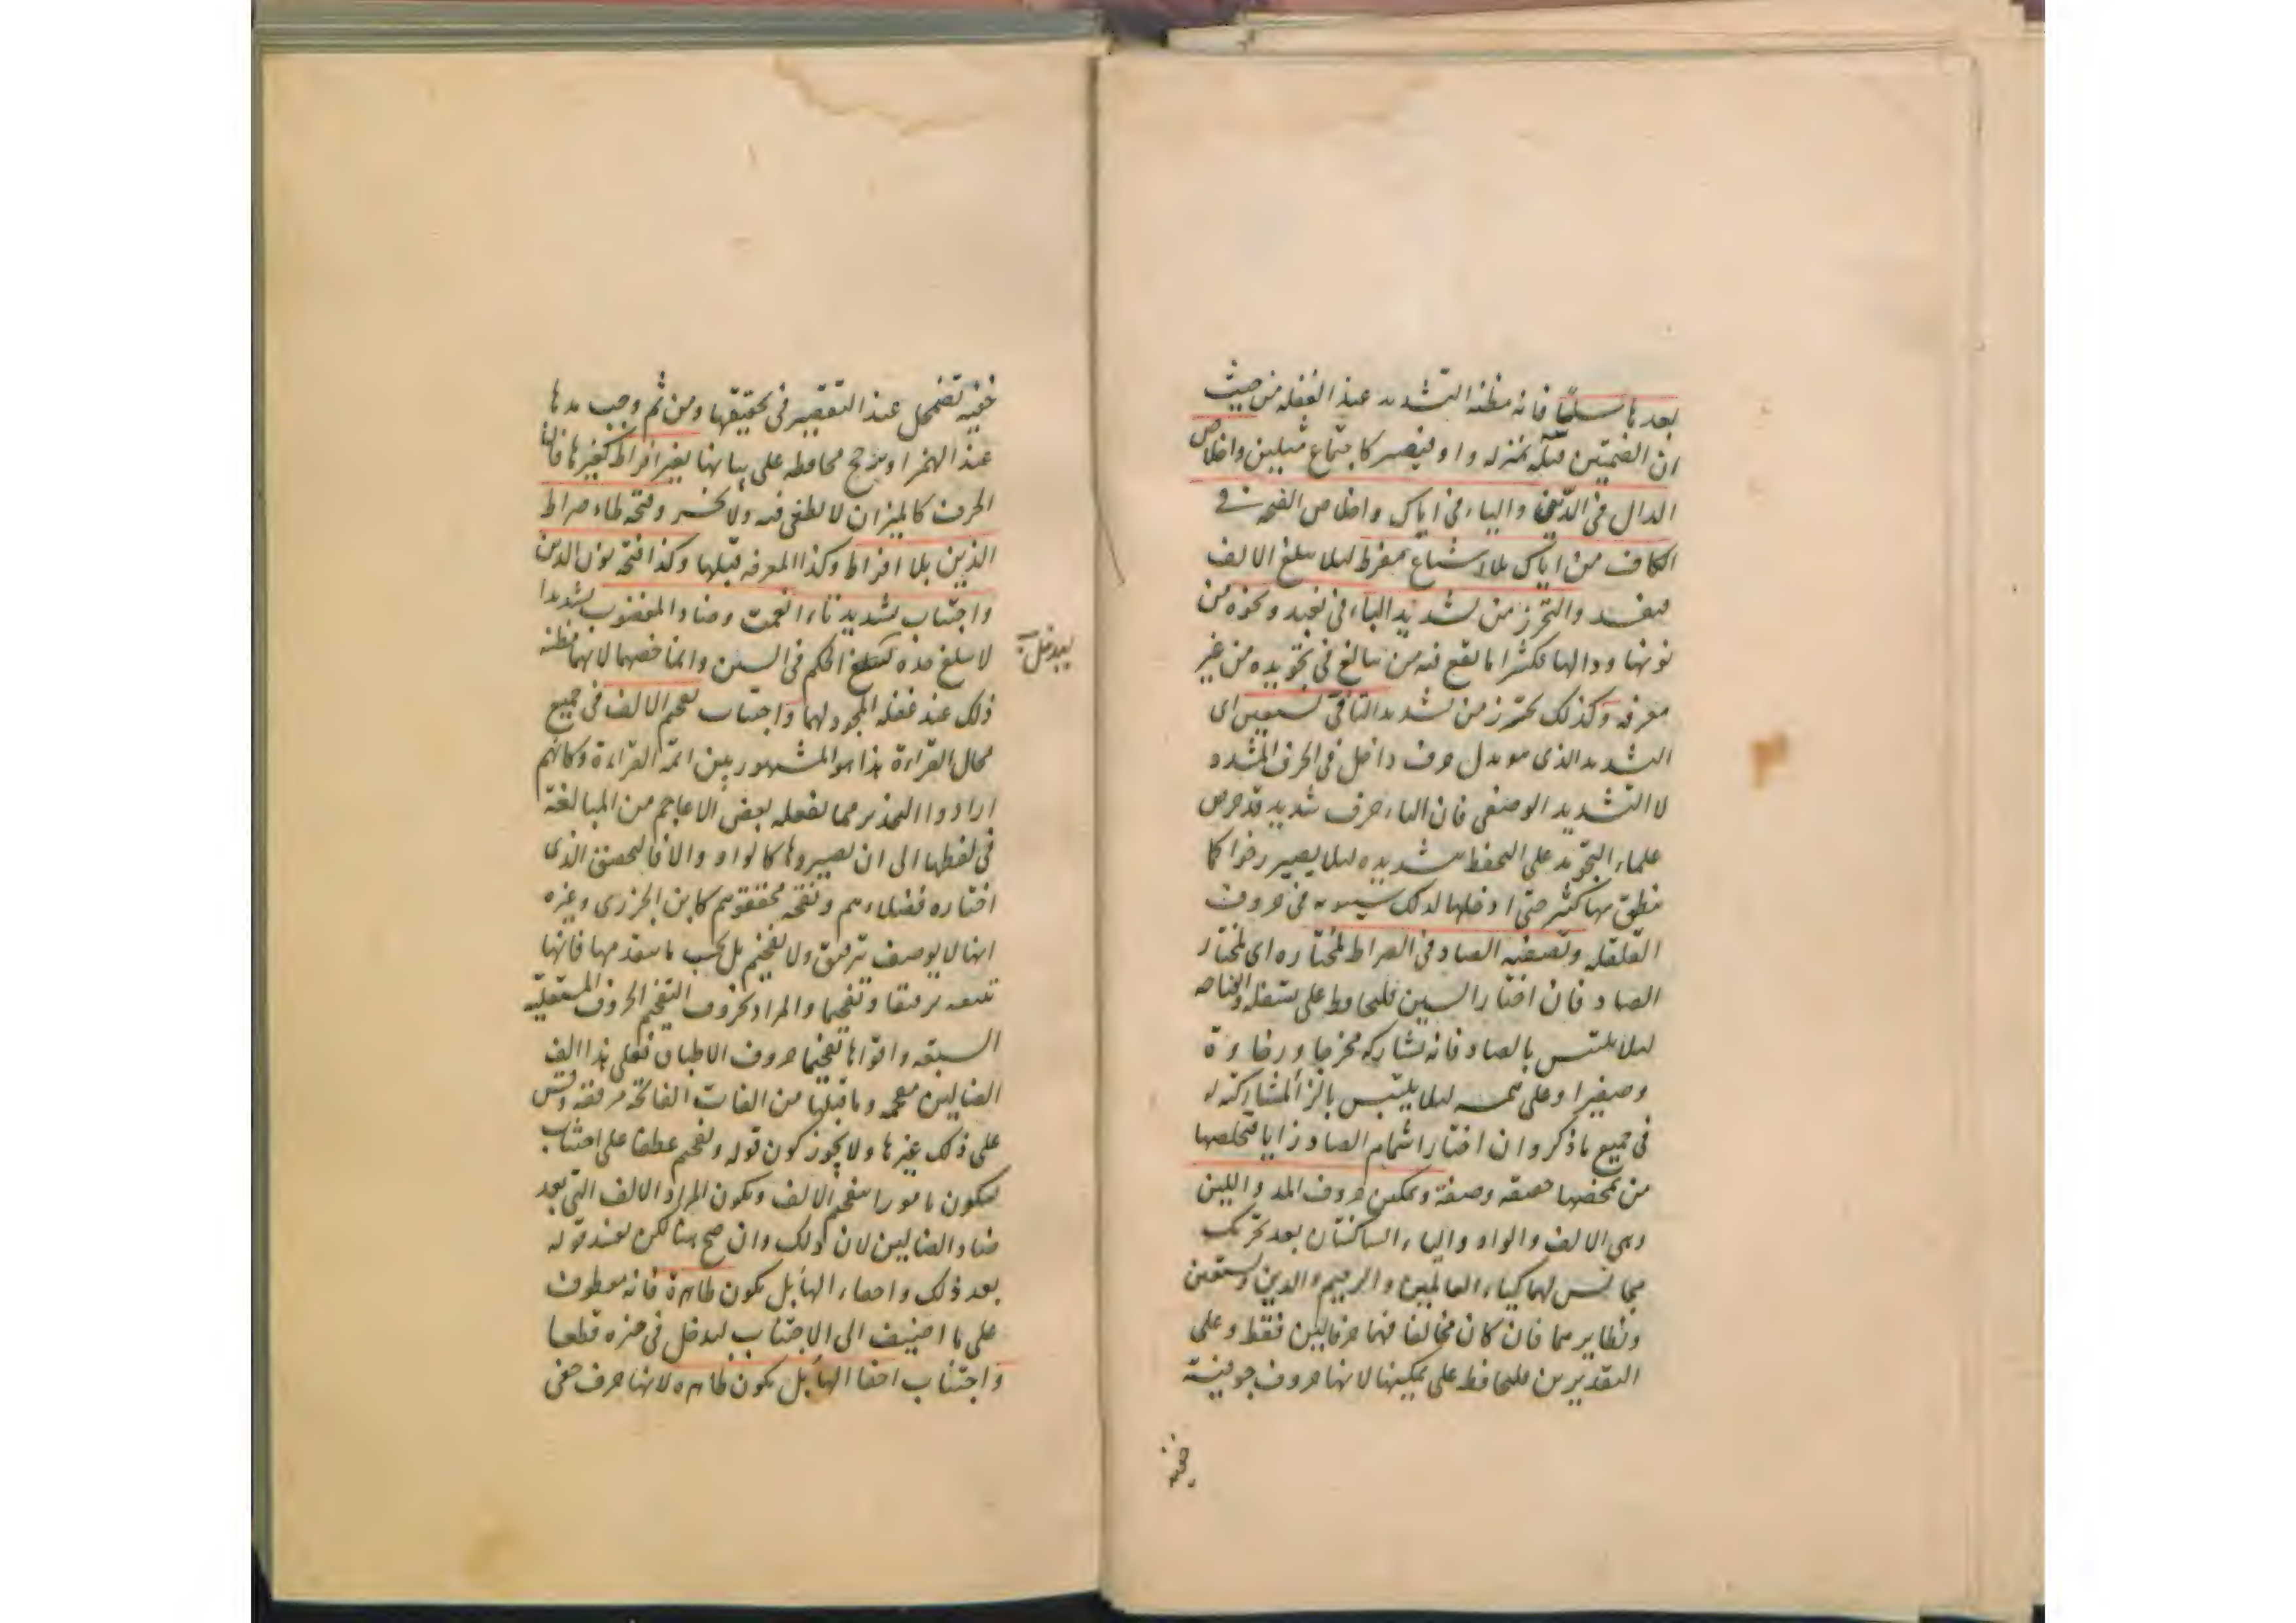 بعدها سلسًا فانه مظنة التشديد عند الغفلة من حيث
ان الضمتين قبله بمنزله واو فيصير كاجتماع مثلين واخلاص
الدال فى الدين والياء فى اياك واخلاص الفتحه فى
الكاف من اياك بلا اشباع مفرط لئلا يبلغ الالف
فيفسد والتحرز من تشديد الباء فى نعبد ونحوه من
نونها ودالها فكثيرا ما يقع فيه من يبالغ فى تجويده من غير
معرفه وكذلك يحترز من تشديد التا فى نستعين اى
التشديد الذى هو بدل حرف داخل فى الحرف المشدد
لا التشديد الوصفى فان الباء حرف شديد قد حرص
علماء التجويد على التحفظ بشديده لئلا يصير رخوا كما
ينطق بها كثير حتى ادخلها لذلك سيبويه فى حروف
القلقله وتصفيه الصاد فى الصراط لمختاره اى لمختار
الصاد فان اختار السين فليحافظ على تسفله وانفتاحه
لئلا يلتبس بالصاد فانه تشاركه مخرجا ورخاوة
وصفيرا وعلى همسه لئلا يلتبس بالزا لمشاركته له
فى جميع ما ذكر وان اختار اشمام الصاد زايا فيخلصها
من تمحضها حقيقه وصفة وتمكين حروف المد واللين
وهى الالف والواو والياء الساكنتان بعد تحريك
مجانس لهما كياء العالمين والرحيم والدين ونستعين
ونظايرهما فان كان مخالفا فهما حرفا لين فقط وعلى
التقديرين فليحافظ على تمكينها لانها حروف جوفية
خفيه
خفيه تضمحل عند التقصير فى تحقيقها ومن ثم وجب مدها
عند الهمز او مدغم محافظه على بيانها بغير افراط كغيرها فان
الحرف كالميزان لا يطغى فيه ولا يخسر وفتحه طاء صراط
الذين بلا افراط وكذا المعرفه قبلها وكذا فتحة نون الذين
واجتناب تشديد تاء انعمت وضاد المغضوب تشديدا
لا يبلغ مده كبلغ الحكم فى السين وانما خصهما لانهما مظنه
ليدخل
ذلك عند غفله المجود لهما واجتناب تفخيم الالف فى جميع
محال القراءة هذا هو المشهور بين ائمة القراءة وكانهم
ارادوا التحذير مما يفعله بعض الاعاجم من المبالغة
فى لفظها الى ان يصيروها كالواو والا فالتحقيق الذى
اختاره فضلاءهم ونقحه محققوهم كابن الجزرى وغيره
انها لا يوصف بترقيق ولا تفخيم بل بحسب ما يتقدمها فانها
تتبعه ترقيقا وتفخيما والمراد بحروف التفخيم الحروف المستعليه
السبعه واقواها تفخيما حروف الاطباق فعلى هذا الف
الضالين مفخمه وما قبلها من الفات الفاتحة مرققه وقس
على ذلك غيرها ولا يجوز كون قوله وتفخيم عطفا على اجتناب
ليكون مامورا بتفخيم الالف ويكون المراد الالف التى بعد
ضاد الضالين لان ذلك وان صح هنا لكن يفسد قوله
بعد ذلك واخفاء الها بل يكون ظاهرة فانه معطوف
على ما اضيف الى الاجتناب ليدخل فى حيزه قطعا
واجتناب اخفا الها بل يكون ظاهره لانها حرف خفى